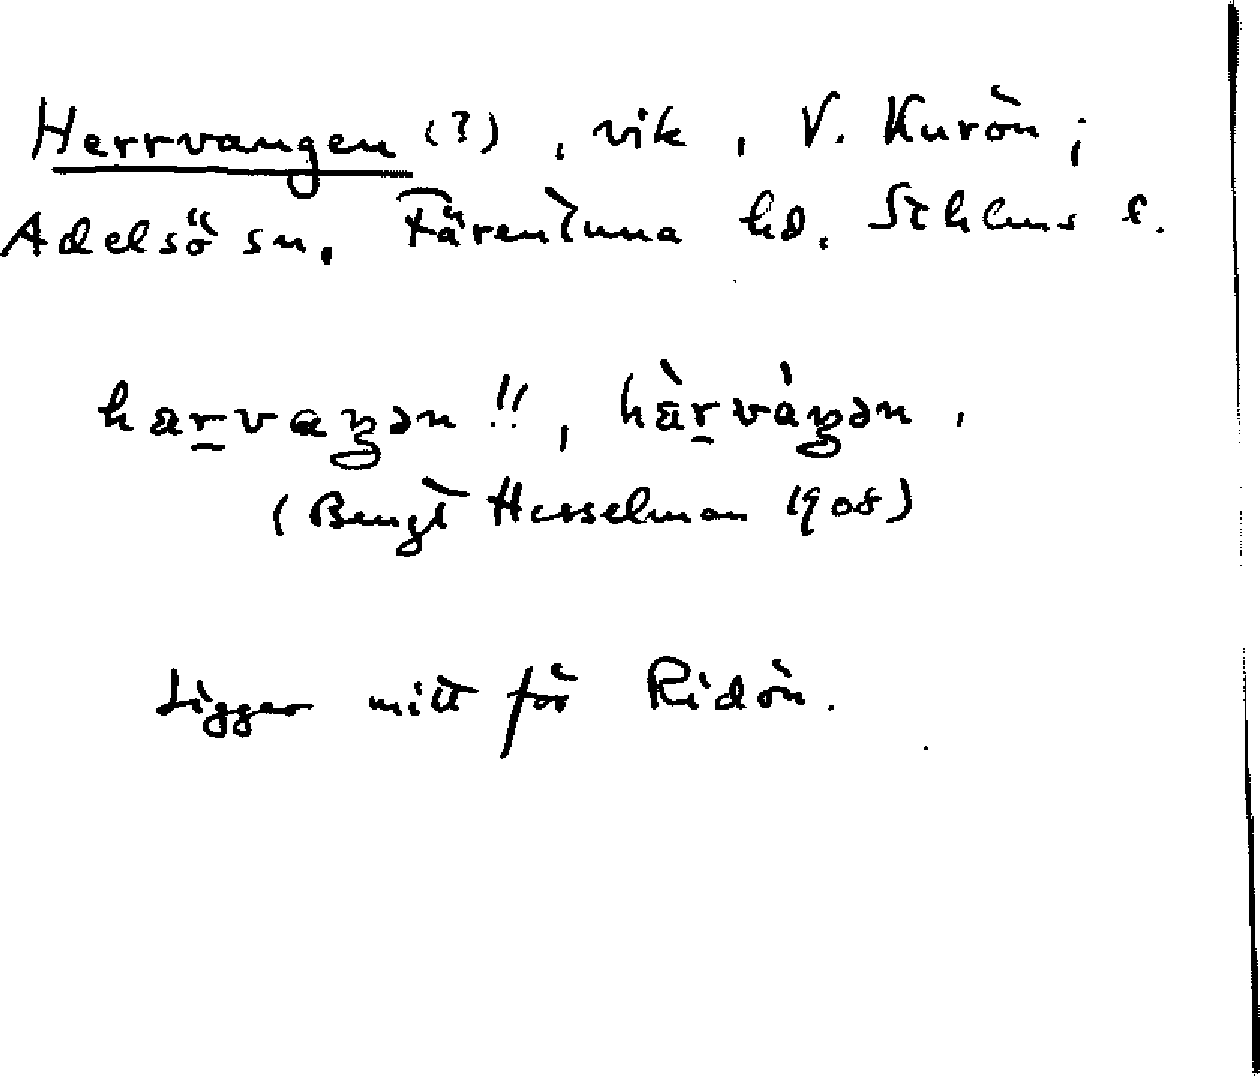 Herrvangen (?), vik, V. Kurön;
Adelsö sn, Färentuna hd. Sthlms l.
härvaŋən!!, hä̀rvàŋən,
(Bengt Hesselman 1908)
Ligger mitt för Ridön.